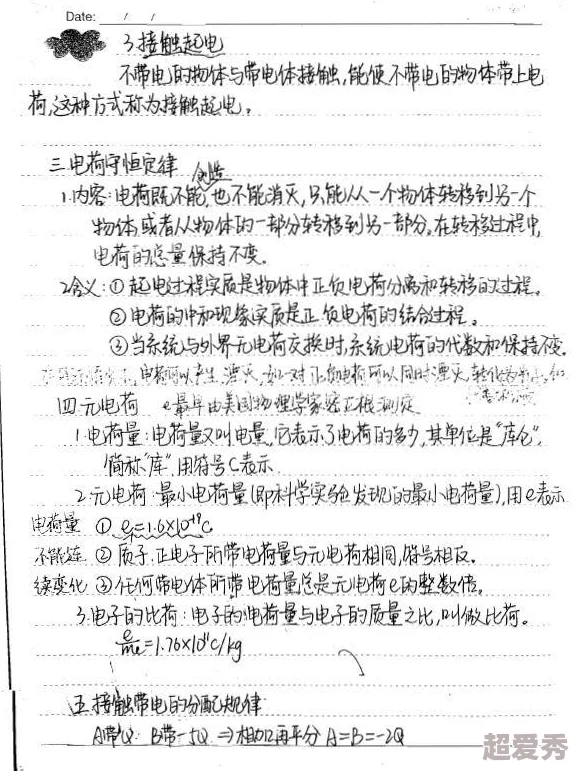 Date: / /
3.接触起电
不带电的物体与带电体接触,能使不带电的物体带上电
荷,这种方式称为接触起电。
三.电荷守恒定律
创造
1.内容:电荷既不能,也不能消灭,只能从一个物体转移到另一个
物体,或者从物体的一部分转移到另一部分,在转移过程中,
电荷的总量保持不变。
2含义:①起电过程实质是物体中正负电荷分离和转移的过程。
②电荷的中和现象实质是正负电荷的结合过程。
③当系统与外界无电荷交换时,系统电荷的代数和保持不变.
电荷可以产生,湮灭,如一对正负电荷可以同时湮灭,转化
四.元电荷 e最早由美国物理学家密立根测定
1.电荷量:电荷量又叫电量,它表示了电荷的多少,其单位是“库仑”,
简称“库”用符号C表示
2.元电荷:最小电荷量(即科学实验发现的最小电荷量),用e表示
电荷量 ①e=1.6×10⁻¹⁹C
不能连 ②质子.正电子所带电荷量与元电荷相同,符号相反.
续变化 ③任何带电体所带电荷量总是元电荷e的整数倍。
3.电子的比荷:电子的电荷量与电子的质量之比,叫做比荷。
e/me=1.76×10¹¹C/kg
五.接触带电的分配规律
A带Q B带-5Q ⇒相加再平分 A=B=-2Q
超爱秀